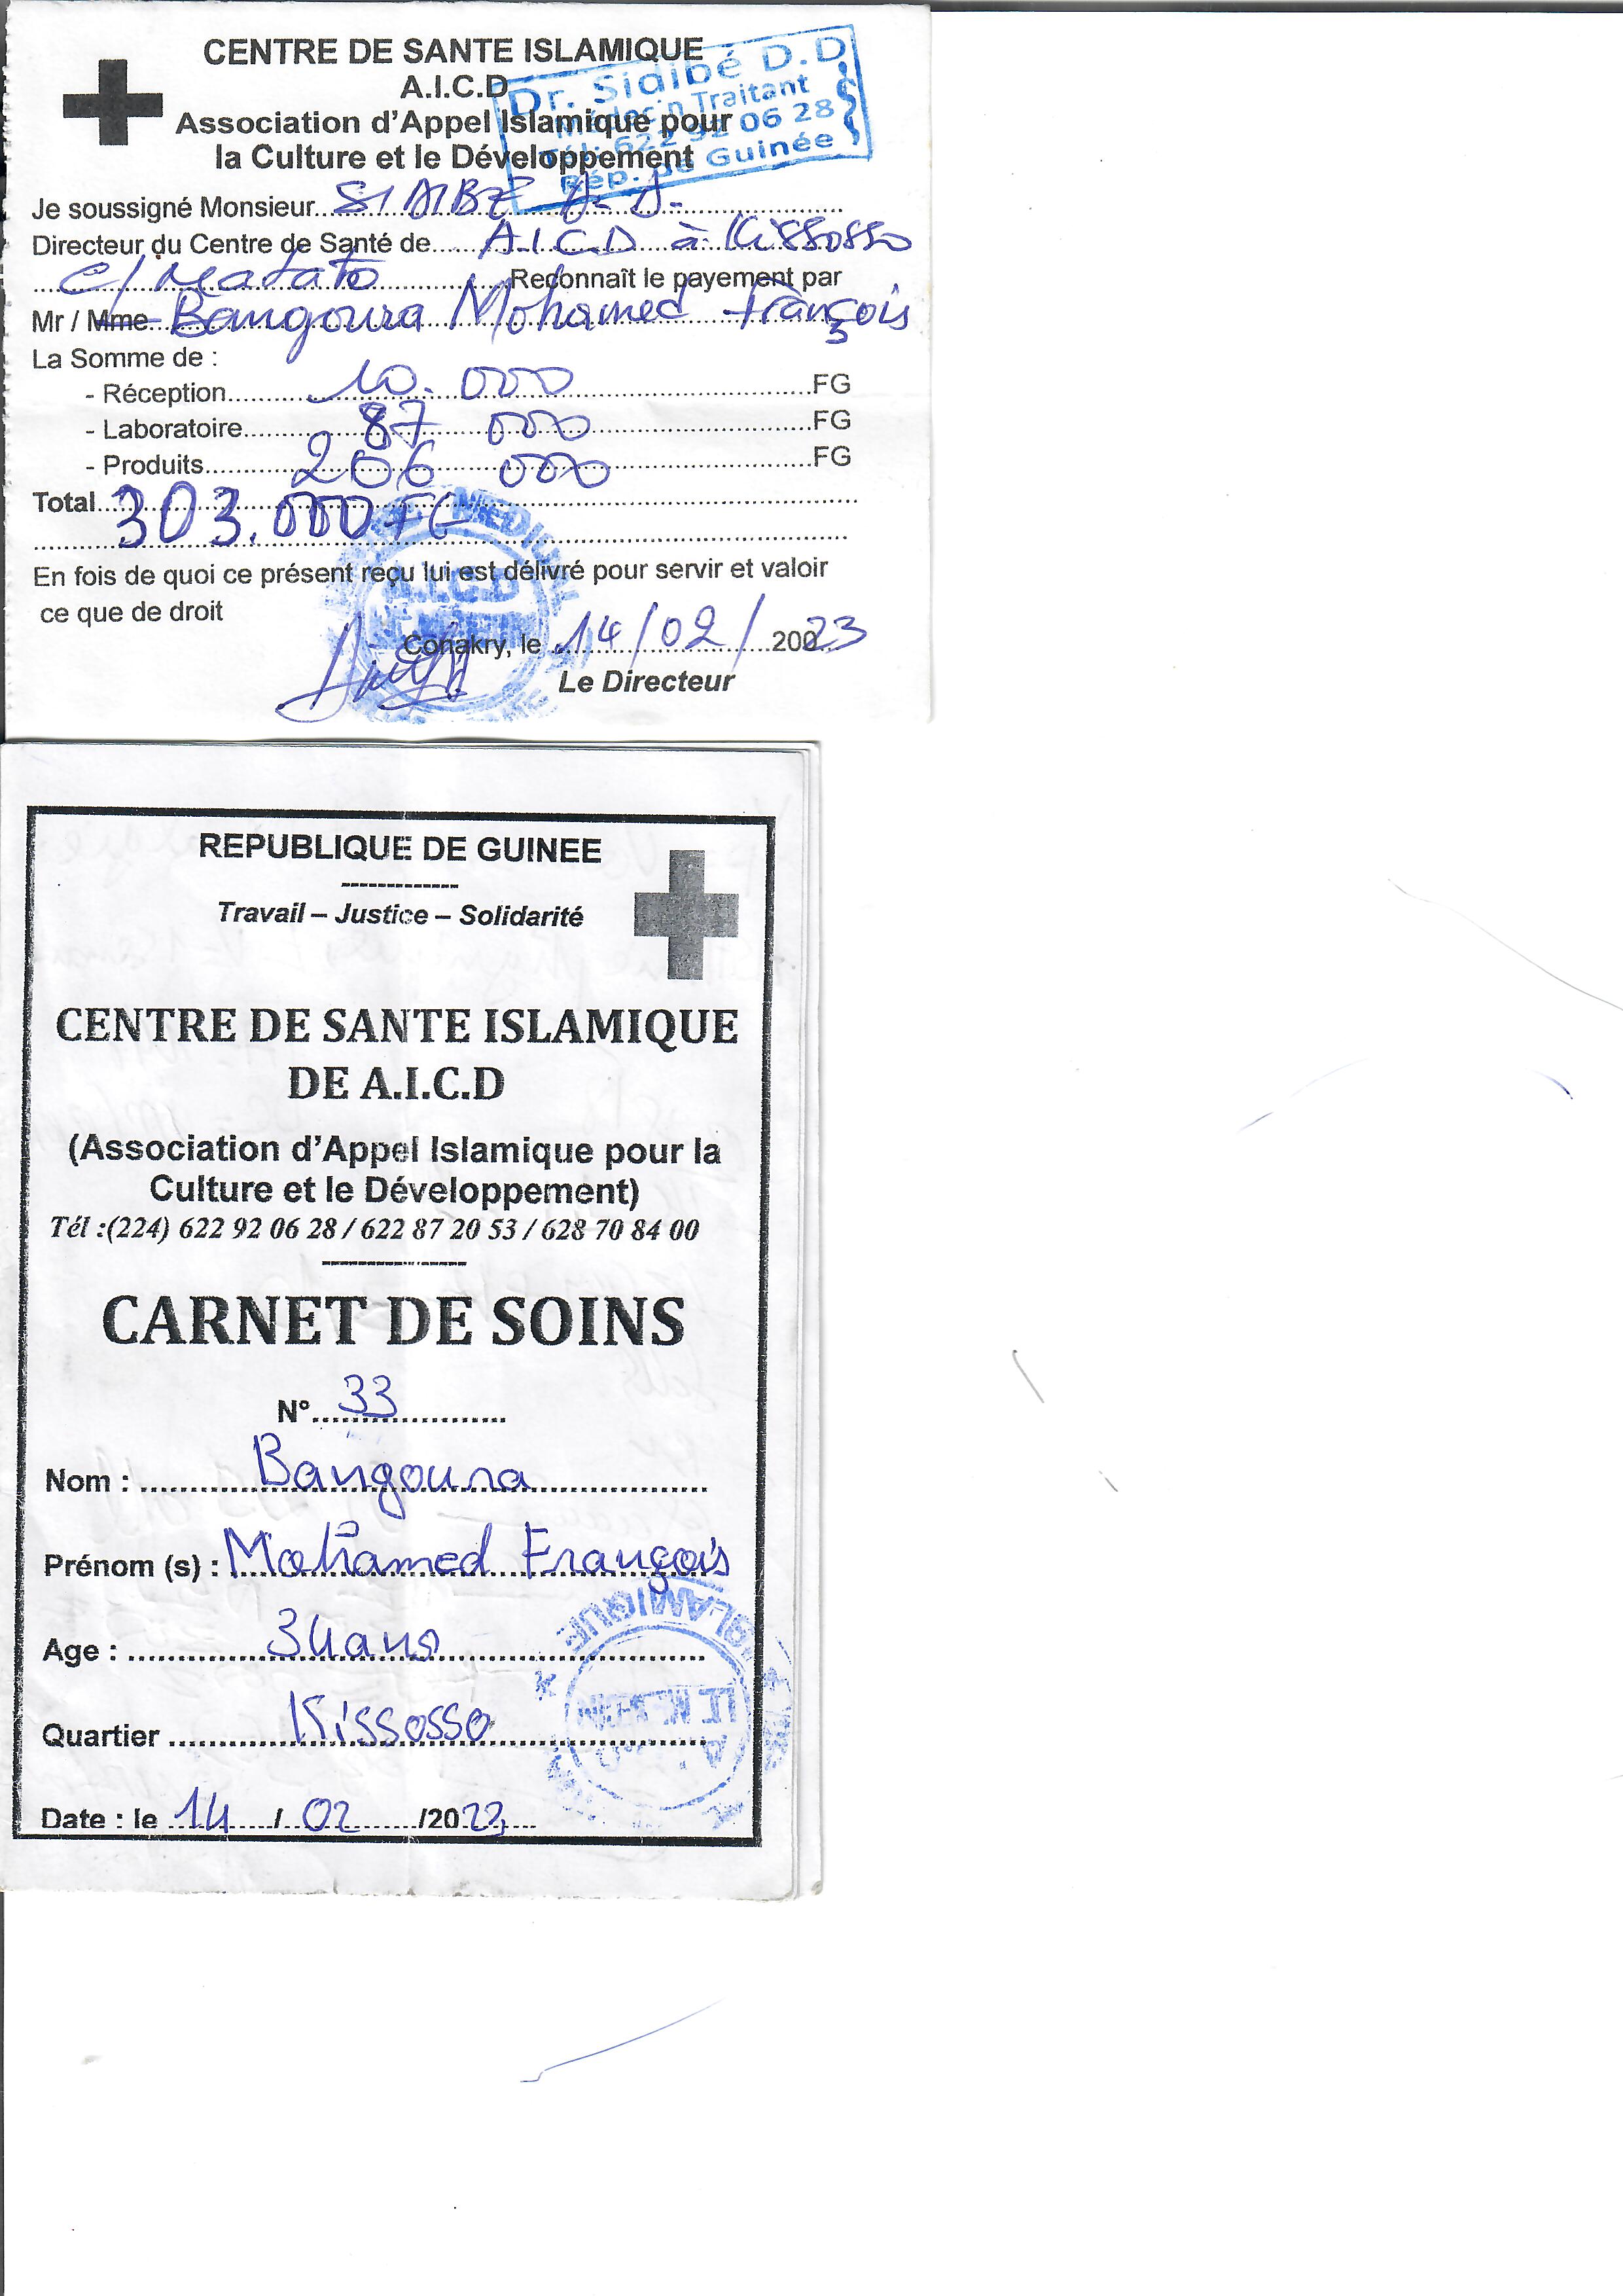 CENTRE DE SANTE ISLAMIQUE
A.I.C.D
Association d'Appel Islamique pour
la Culture et le Développement
Dr. Sidibé D.D
Médecin Traitant
Tél: 622 92 06 28
Rép. de Guinée
Je soussigné Monsieur SIDIBE D.D.
Directeur du Centre de Santé de A.I.C.D à Kissosso
C/ Matoto Reconnaît le payement par
Mr / Mme Bangoura Mohamed François
La Somme de :
- Réception 10.000 FG
- Laboratoire 87 000 FG
- Produits 206 000 FG
Total 303.000 FG
En fois de quoi ce présent reçu lui est délivré pour servir et valoir
ce que de droit
A.I.C.D
Conakry, le 14/02/ 20023
Le Directeur
REPUBLIQUE DE GUINEE
Travail – Justice – Solidarité
CENTRE DE SANTE ISLAMIQUE
DE A.I.C.D
(Association d'Appel Islamique pour la
Culture et le Développement)
Tél :(224) 622 92 06 28 / 622 87 20 53 / 628 70 84 00
CARNET DE SOINS
N° 33
Nom : Bangoura
Prénom (s) : Mohamed François
Age : 34 ans
Quartier Kissosso
Date : le 14 / 02 /2023
ISLAMIQUE